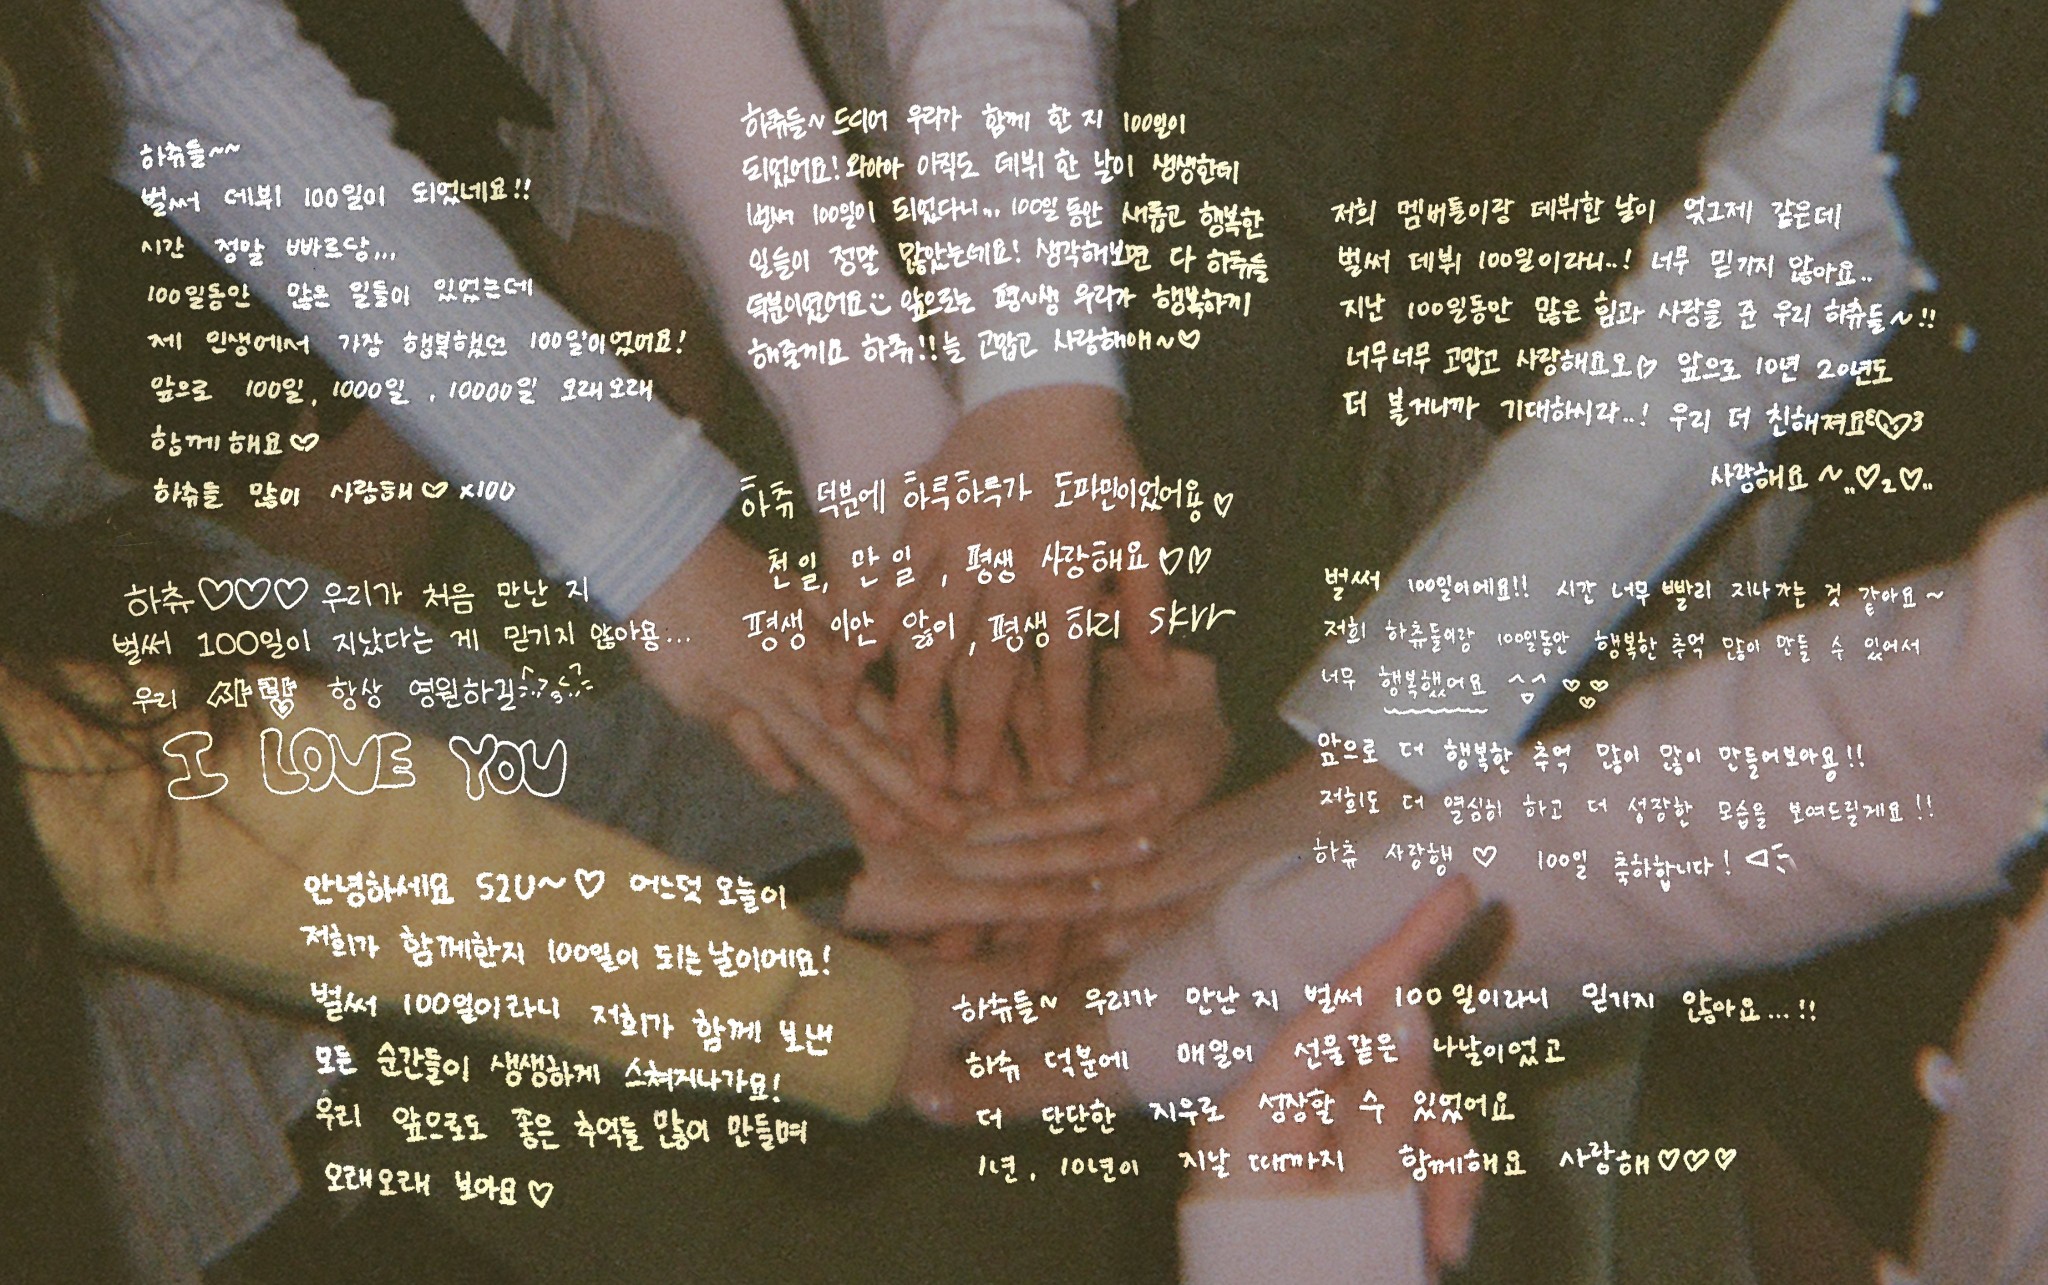 하츄들~~
벌써 데뷔 100일이 되었네요!!
시간 정말 빠르당...
100일동안 많은 일들이 있었는데
제 인생에서 가장 행복했던 100일이었어요!
앞으로 100일, 1000일, 10000일 오래오래
함께해요♡
하츄들 많이 사랑해♡x100
하츄들~ 드디어 우리가 함께 한 지 100일이
되었어요! 와아아 아직도 데뷔 한 날이 생생한데
벌써 100일이 되었다니... 100일 동안 새롭고 행복한
일들이 정말 많았는데요! 생각해보면 다 하츄들
덕분이었어요 앞으로는 평~생 우리가 행복하게
해줄께요 하츄!! 늘 고맙고 사랑해애~♡
저희 멤버들이랑 데뷔한 날이 엊그제 같은데
벌써 데뷔 100일이라니..! 너무 믿기지 않아요..
지난 100일동안 많은 힘과 사랑을 준 우리 하츄들~!!
너무너무 고맙고 사랑해요오♡ 앞으로 10년 20년도
더 볼거니까 기대하시라..! 우리 더 친해져요
사랑해요~..♡2♡..
하츄 덕분에 하루하루가 도파민이었어용♡
천일, 만일, 평생 사랑해요♡♡
평생 이안 앓이, 평생 하리 skrr
하츄♡♡♡ 우리가 처음 만난 지
벌써 100일이 지났다는 게 믿기지 않아용...
우리 항상 영원하길
I LOVE YOU
벌써 100일이에요!! 시간 너무 빨리 지나가는 것 같아요~
저희 하츄들이랑 100일동안 행복한 추억 많이 만들 수 있어서
너무 행복했어요
앞으로 더 행복한 추억 많이 많이 만들어보아용!!
저희도 더 열심히 하고 더 성장한 모습을 보여드릴게요!!
하츄 사랑행♡ 100일 축하합니다!
안녕하세요 S2U~♡ 어느덧 오늘이
저희가 함께한지 100일이 되는 날이에요!
벌써 100일이라니 저희가 함께 보낸
모든 순간들이 생생하게 스쳐지나가요!
우리 앞으로도 좋은 추억들 많이 만들며
오래오래 보아요♡
하츄들~ 우리가 만난 지 벌써 100일이라니 믿기지 않아요...!!
하츄 덕분에 매일이 선물같은 나날이었고
더 단단한 지우로 성장할 수 있었어요
1년, 10년이 지날 때까지 함께해요 사랑해♡♡♡